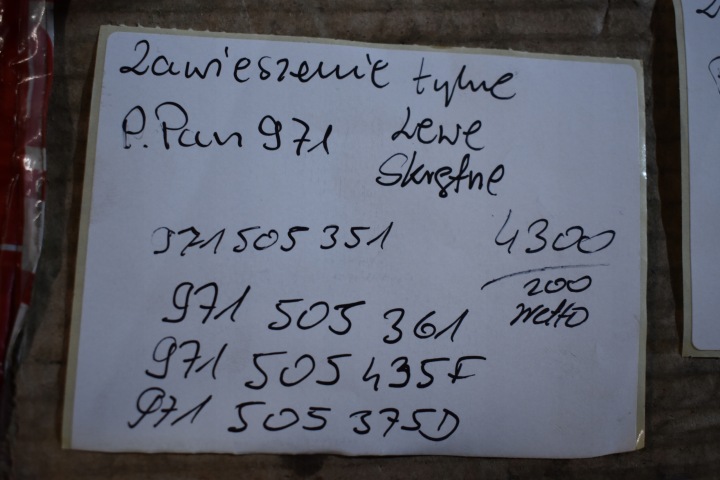 Zawieszenie tylne
P.Pan 971 Lewe
Skrętne
971505351 4300
200
netto
971 505 361
971 505 435F
971 505 375D